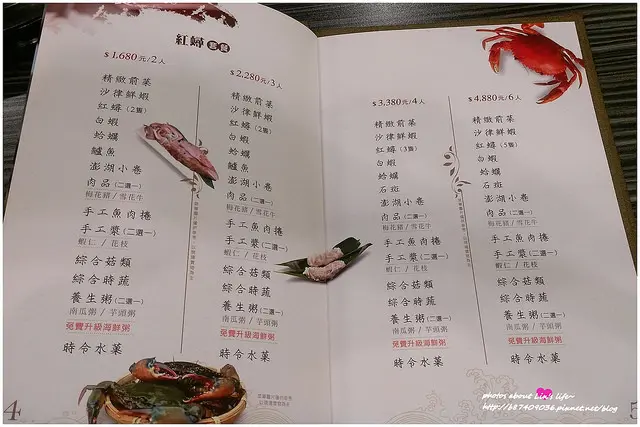 紅蟳套餐
$1,680元/2人
精緻前菜
沙律鮮蝦
紅蟳(2隻)
白蝦
蛤蠣
鱸魚
澎湖小卷
肉品(二選一)
梅花豬/雪花牛
手工魚肉捲
手工漿(二選一)
蝦仁/花枝
綜合菇類
綜合時蔬
養生粥(二選一)
南瓜粥/芋頭粥
免費升級海鮮粥
時令水菓
$2,280元/3人
精緻前菜
沙律鮮蝦
紅蟳(2隻)
白蝦
蛤蠣
鱸魚
澎湖小卷
肉品(二選一)
梅花豬/雪花牛
手工魚肉捲
手工漿(二選一)
蝦仁/花枝
綜合菇類
綜合時蔬
養生粥(二選一)
南瓜粥/芋頭粥
免費升級海鮮粥
時令水菓
4
$3,380元/4人
精緻前菜
沙律鮮蝦
紅蟳(3隻)
白蝦
蛤蠣
石斑
澎湖小卷
肉品(二選一)
梅花豬/雪花牛
手工魚肉捲
手工漿(二選一)
蝦仁/花枝
綜合菇類
綜合時蔬
養生粥(二選一)
南瓜粥/芋頭粥
免費升級海鮮粥
時令水菓
$4,880元/6人
精緻前菜
沙律鮮蝦
紅蟳(5隻)
白蝦
蛤蠣
石斑
澎湖小卷
肉品(二選一)
梅花豬/雪花牛
手工魚肉捲
手工漿(二選一)
蝦仁/花枝
綜合菇類
綜合時蔬
養生粥(二選一)
南瓜粥/芋頭粥
免費升級海鮮粥
時令水菓
5
photos about Lin's life~
http://687409036.pixnet.net/blog